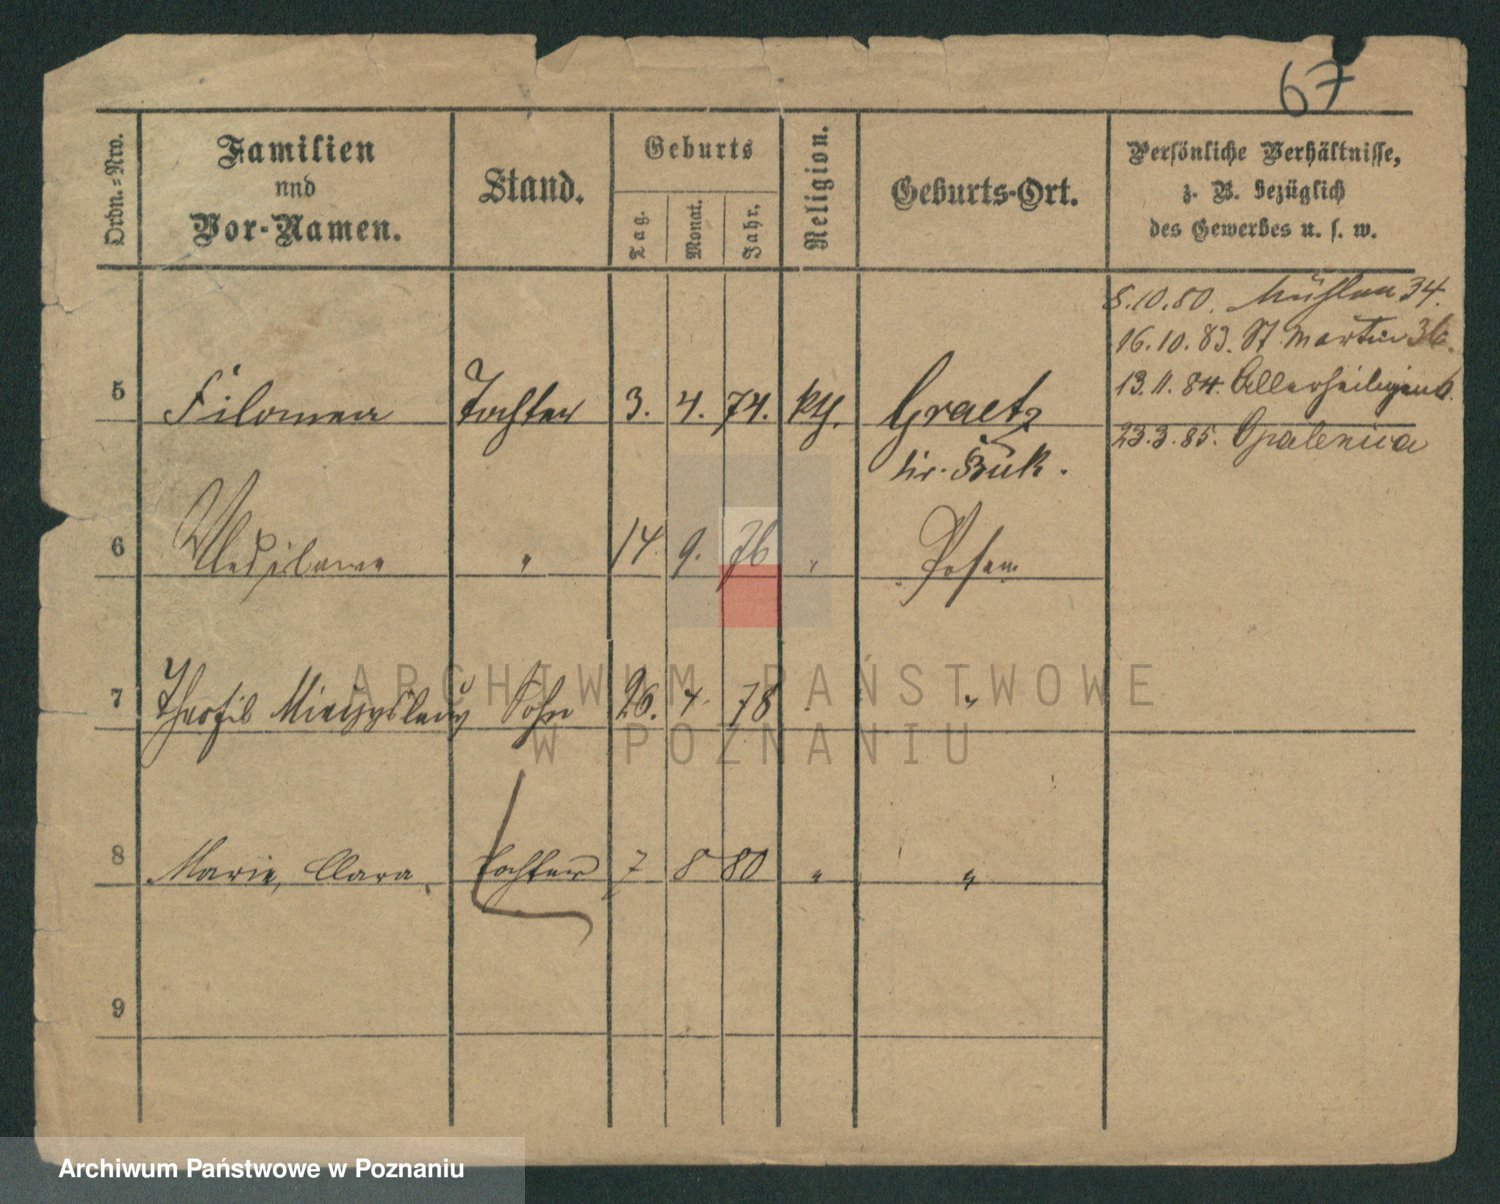 67
Ordn.-Nro.
Familien
und
Vor-Namen.
Stand.
Geburts
Tag.
Monat.
Jahr.
Religion.
Geburts-Ort.
Persönliche Verhältnisse,
z. B. bezüglich
des Gewerbes u. s. w.
8.10.80. Mühlen 34.
16.10.83. St. Martin 36.
13.11.84. Allerheiligen
5 Filomena Tochter 3. 4. 74. kth. Graetz
23.3.85. Opalenica
Kr. Buk.
6 " 14. 9. 76 " Posen
7 Theofil Mieczyslaus Sohn 26. 4. 78 "
8 Marie, Clara, Tochter 7 8 80 " "
9
ARCHIWUM PAŃSTWOWE
W POZNANIU
Archiwum Państwowe w Poznaniu